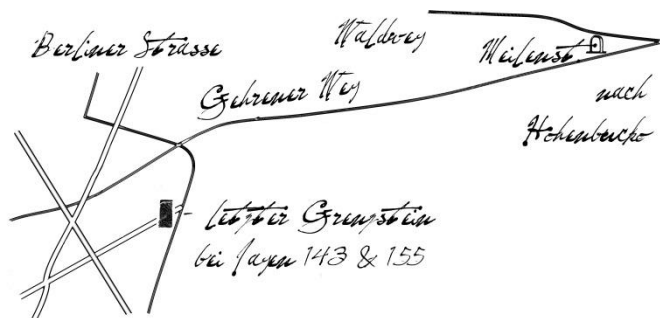 Berliner Strasse
Waldweg
Meilenst.
Gehrener Weg
nach
Hohenbucko
Letzter Grenzstein
bei Jagen 143 & 155